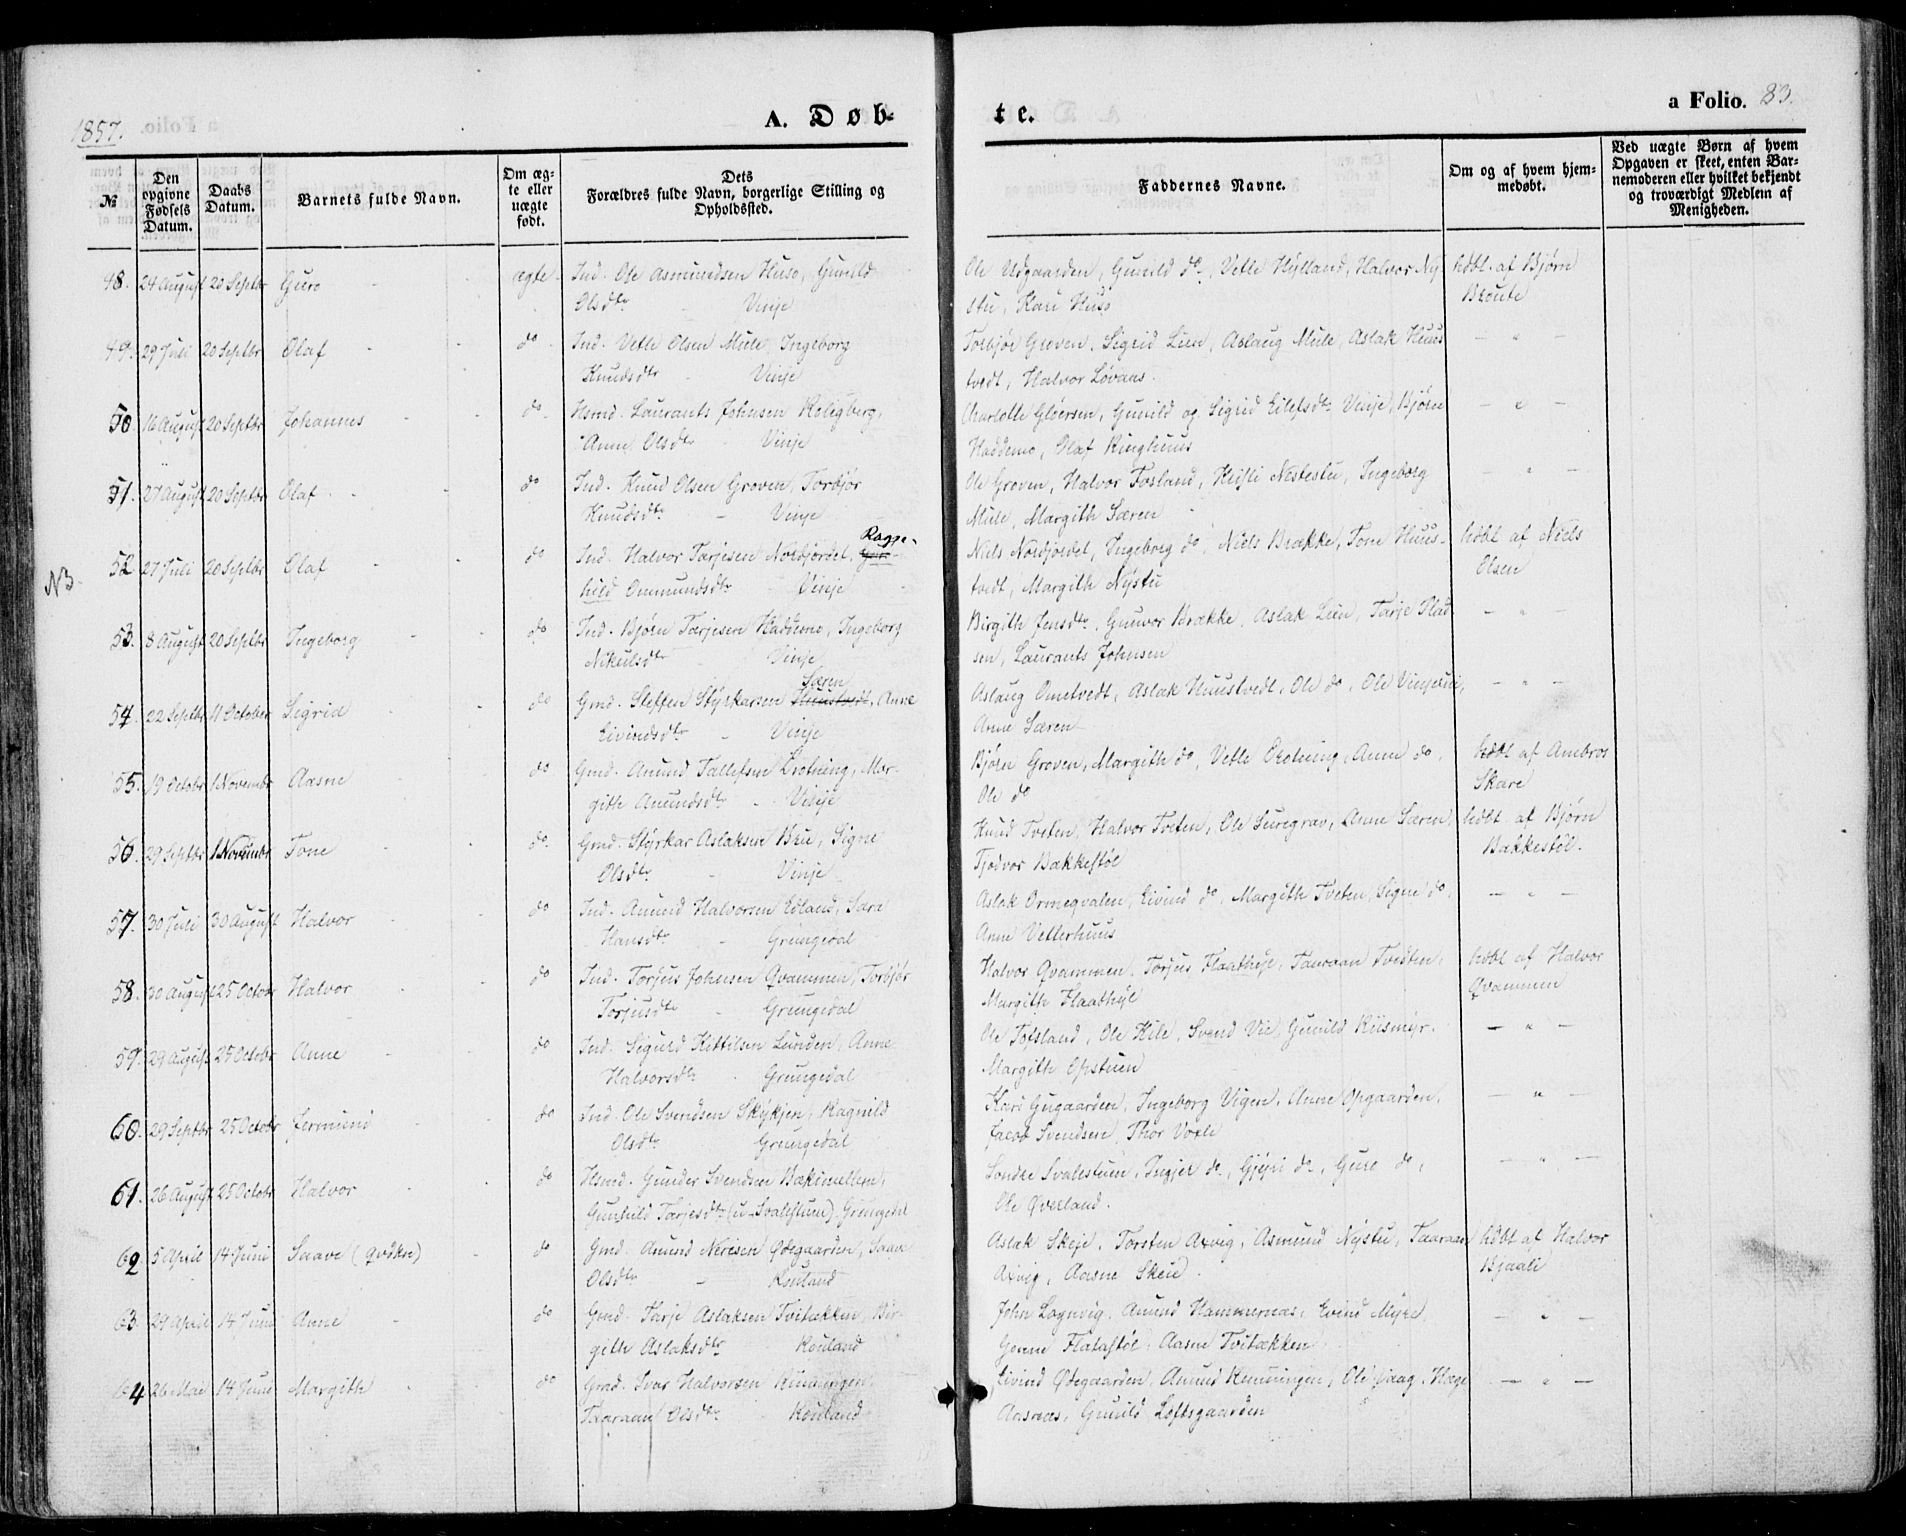 1857.
A. Døb-
te.
a Folio. 83.
№
Den opgivne Fødsels Datum.
Daabs Datum.
Barnets fulde Navn.
Om ægte eller uægte født.
Dets Forældres fulde Navn, borgerlige Stilling og Opholdssted.
Faddernes Navne.
Om og af hvem hjemmedøbt.
Ved uægte Børn af hvem Opgaven er skeet, enten Barnemoderen eller hvilket bekjendt og troværdigt Medlem af Menigheden.
48. 24 August 20 Septbr Guro - ægte - Ind. Ole Asmundsen Huso, Gunild
Olsdtr - Vinje
Ole Udgaarden, Gunild do, Vetle Hylland, Halvor Ny-
stu, Kari Huso
hdbt. af Bjørn
Broute
49. 29 Juli 20 Septbr Olaf - do - Ind. Vetle Olsen Mule, Ingeborg
Knudsdtr - Vinje
Torbjør Groven, Sigrid Lien, Aslaug Mule, Aslak Huus
tvedt, Halvor Løvaas.
- " -
50 16 August 20 Septbr Johannes - do - Hsmd. Laurants Johnsen Roligberg,
Anne Olsdtr - Vinje
Charlotte Gløersen, Gunild og Sigrid Eilefsdtr Vinje, Bjørn
Haddemo, Olaf Ringhuus
- " -
51. 27 August 20 Septbr Olaf - do Ind. Knud Olsen Groven, Torbjør
Knudsdtr - Vinje
Ole Groven, Halvor Fosland, Kistli Nestestu, Ingeborg
Mule, Margith Særen
- " -
NB.
52 27 Juli 20 Septbr Olaf - do Ind. Halvor Tarjesen Nordjordet, Gun- Ragne-
hild Ommundsdtr - Vinje
Niels Nordjordet, Ingeborg do, Niels Brække, Tone Huus-
tvedt, Margith Nystu
hdbt af Niels
Olsen
53. 8 August 20 Septbr Ingeborg - do Ind. Bjørn Tarjesen Haddemo, Ingeborg
Nikulsdtr - Vinje
Birgith Jensdtr, Gunvor Brække, Aslak Lien, Tarje Flad
sen, Laurants Johnsen
- " -
54. 22 Septbr 11 October Sigrid - do Gmd. Steffen Styrkarsen Huustvedt, Særen Anne
Eivindsdtr - Vinje
Aslaug Ometvedt, Aslak Huustvedt, Ole do, Ole Vinjeiui,
Anne Særen
- " -
55. 19 Octobr 1 Novembr Aasne - do Gmd. Anund Tallefsen Drotning, Mar-
gith Anundsdtr - Vinje
Bjørn Groven, Margith do, Vetle Drotning, Anne do,
Ole do
hdbt af Ambros
Skare
56. 29 Septbr 1 Novembr Tone - do Gmd. Styrkar Aslaksen Bru, Signe
Olsdtr - Vinje
Knud Tveten, Halvor Tveten, Ole Suregrav, Anne Særen,
Tjodvor Bakkestøl
hdbt af Bjørn
Bakkestøl.
57. 30 Juli 30 August Halvor - do Ind. Anund Halvorsen Edland, Sara
Hansdtr - Grungedal
Aslak Ormeqvalen, Eivind do, Margith Tveten, Signe do,
Anne Vetlerhuus
- " -
58. 30 August 25 Octobr Halvor - do Ind. Torjus Johnsen Qvammen, Torbjør
Torjusdtr - Grungedal
Halvor Qvammen, Torjus Flaathyl, Taaraan Tvedten,
Margith Flaathyl
hdbt af Halvor
Qvammen
59. 29 August 25 Octobr Anne - do Ind. Sigurd Kittilsen Lunden, Anne
Halvorsdtr - Grungedal
Ole Tofsland, Ole Kile, Svend Vie, Gunild Riismyr.
Margith Opstuen
- " -
60. 29 Septbr 25 Octobr Jermund - do Ind. Ole Svendsen Skykjen, Ragnild
Olsdtr Grungedal
Kari Gugaarden, Ingeborg Vigen, Anne Opgaarden,
Jacob Svendsen, Thor Voxli
- " -
61. 26 August 25 Octobr Halvor - do Hsmd. Gunder Svendsen Bækimellem,
Gunhild Tarjesdtr (u. Svalestuen). Grungedal
Sondre Svalestuen, Ingjer do, Gjyri do, Guro do,
Ole Øverland.
- " -
62 5 April 14 Juni Saave (qvdkn) - do Gmd. Anund Nerisen Ødegaarden, Saave
Olsdtr - Rouland
Aslak Skeje, Torsten Axvig, Asmund Nystu, Taaraan
Axvig, Aasne Skeie.
hdbt af Halvor
Bjaali
63. 29 April 14 Juni Anne - do Gmd. Tarje Aslaksen Tvitækken, Bir-
gith Aslaksdtr Rouland
John Lognvig, Anund Hammernæs, Evind Myre,
Gonne Flatastøl, Aasne Tvitækken
- " -
64 26 Mai 14 Juni Margith - do Gmd. Ivar Halvorsen Kinningen,
Taaraan Olsdtr - Rouland
Eivind Ødegaarden, Anund Kemningen, Ole Vaag, Hæge
Aasnæs, Gunild Loftsgaarden
- " -